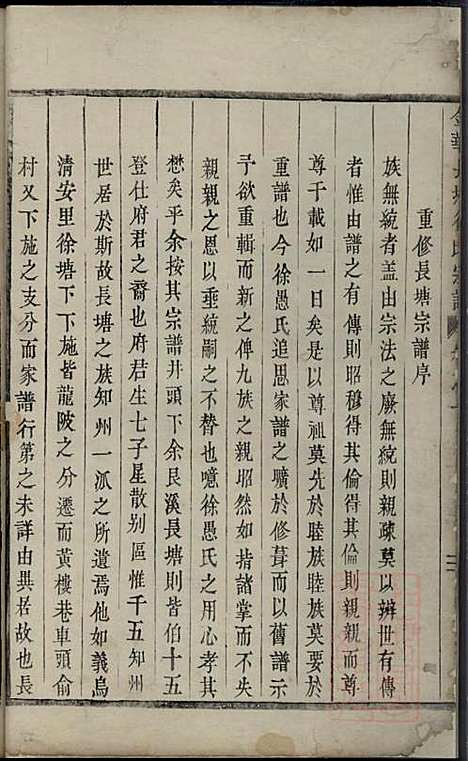 金華長塘徐氏宗譜
重修長塘宗譜序
族無統者蓋由宗法之廢無統則親疎莫以辨世有傳
者惟由譜之有傳則昭穆得其倫得其倫則親親而尊
尊于載如一日矣是以尊祖莫先於睦族睦族莫要於
重譜也今徐愚氏追思家譜之曠於修葺而以舊譜示
予欲重輯而新之俾九族之親昭然如指諸掌而不失
親親之恩以垂統嗣之不替也噫徐愚氏之用心孝其
懋矣乎余按其宗譜井頭下余艮溪長塘則皆伯十五
登仕府君之裔也府君生七子星散别區惟千五知州
世居於斯故長塘之族知州一派之所遺焉他如義烏
清安里徐塘下下施皆龍陂之分遷而黃樓巷車頭俞
村又下施之支分而家譜行第之未詳由異居故也長